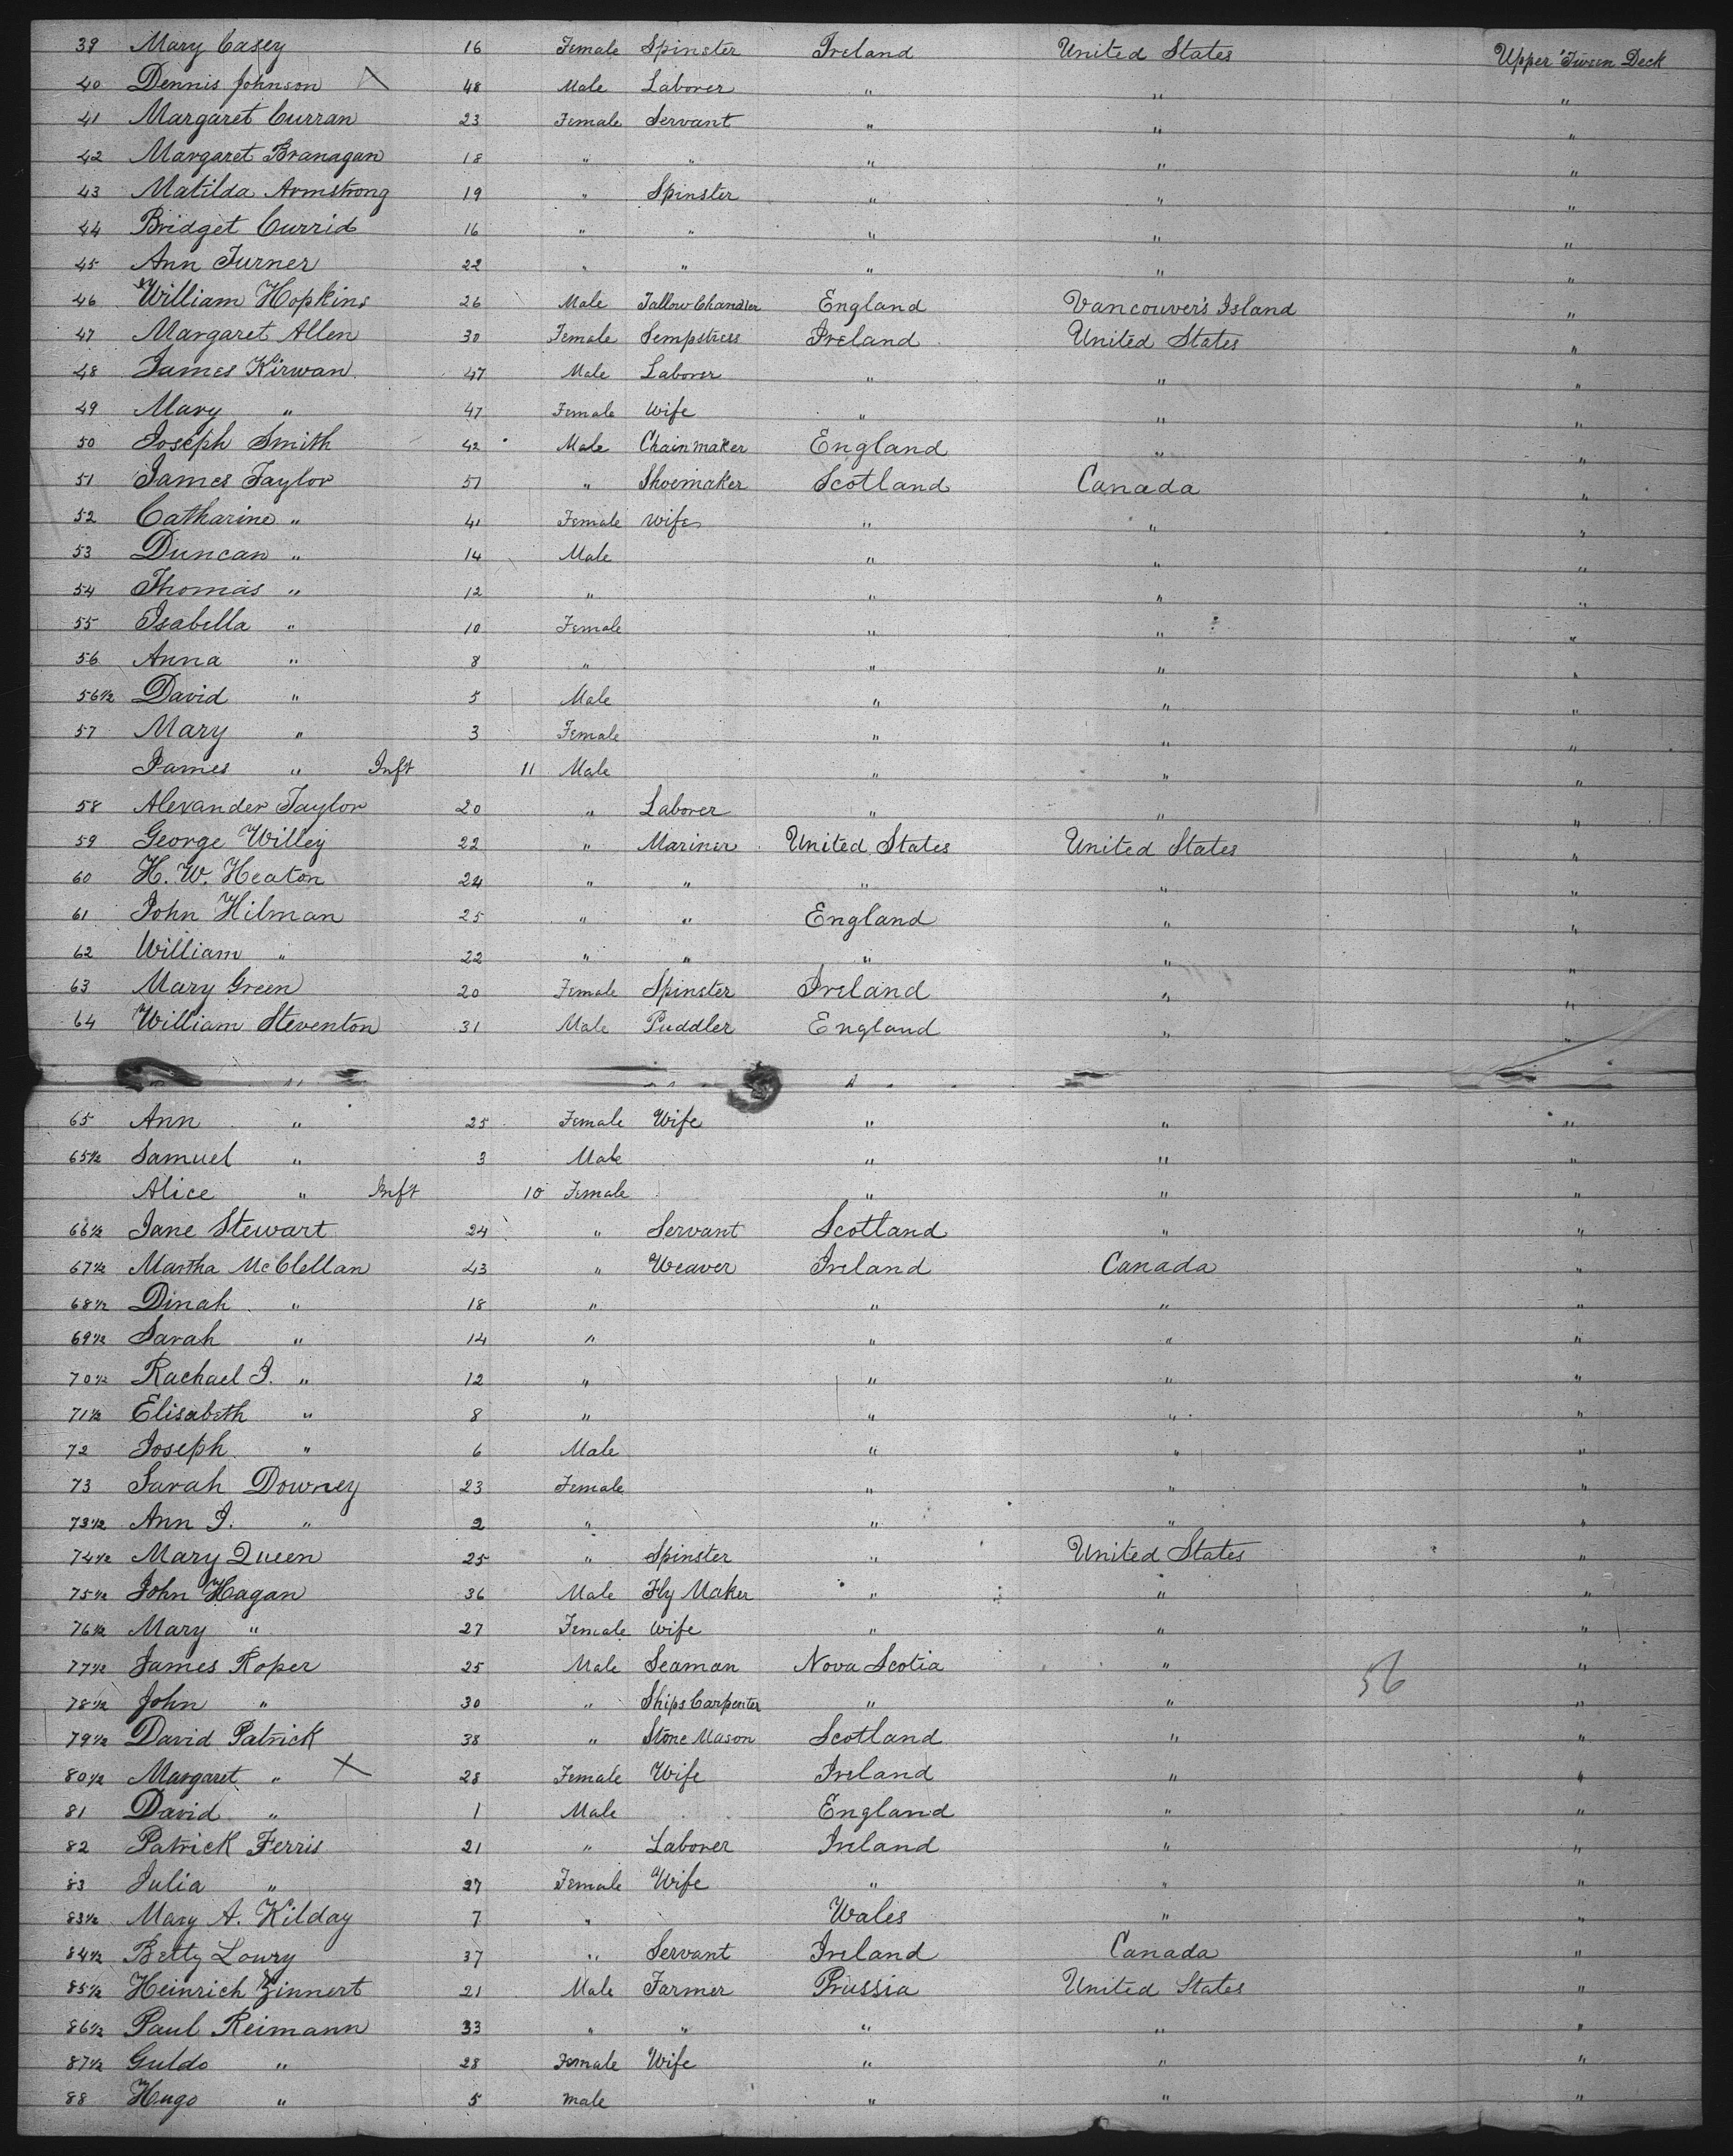 39 Mary Casey 16 Female Spinster Ireland United States Upper 'Tween Deck
40 Dennis Johnson 48 Male Laborer " " "
41 Margaret Curran 23 Female Servant " " "
42 Margaret Branagan 18 " " " " "
43 Matilda Armstrong 19 " Spinster " " "
44 Bridget Currid 16 " " " " "
45 Ann Turner 22 " " " " "
46 William Hopkins 26 Male Tallow Chandler England Vancouver's Island "
47 Margaret Allen 30 Female Sempstress Ireland United States "
48 James Kirwan 47 Male Laborer " " "
49 Mary " 47 Female Wife " " "
50 Joseph Smith 42 Male Chain maker England " "
51 James Taylor 51 " Shoemaker Scotland Canada "
52 Catharine " 41 Female Wife " " "
53 Duncan " 14 Male " " "
54 Thomas " 12 " " " "
55 Isabella " 10 Female " " "
56 Anna " 8 " " " "
56½ David " 5 Male " " "
57 Mary " 3 Female " " "
James " Inft 11 Male " " "
58 Alexander Taylor 20 " Laborer " " "
59 George Willey 22 " Mariner United States United States "
60 H. W. Heaton 24 " " " " "
61 John Hilman 25 " " England " "
62 William " 22 " " " " "
63 Mary Green 20 Female Spinster Ireland " "
64 William Steventon 31 Male Puddler England " "
65 Ann " 25 Female Wife " " "
65½ Samuel " 3 Male " " "
Alice " Inft 10 Female " " "
66½ Jane Stewart 24 " Servant Scotland " "
67½ Martha McClellan 43 " Weaver Ireland Canada "
68½ Dinah " 18 " " " "
69½ Sarah " 14 " " " "
70½ Rachael J. " 12 " " " "
71½ Elisabeth " 8 " " " "
72 Joseph " 6 Male " " "
73 Sarah Downey 23 Female " " "
73½ Ann J. " 2 " " " "
74½ Mary Queen 25 " Spinster " United States "
75½ John Hagan 36 Male Fly Maker " " "
76½ Mary " 27 Female Wife " " "
77½ James Roper 25 Male Seaman Nova Scotia " 56 "
78½ John " 30 " Ships Carpenter " " "
79½ David Patrick 38 " Stone Mason Scotland " "
80½ Margaret " X 28 Female Wife Ireland " "
81 David " 1 Male England " "
82 Patrick Ferris 21 " Laborer Ireland " "
83 Julia " 27 Female Wife " " "
83½ Mary A. Kilday 7 " Wales " "
84½ Betty Lowry 37 " Servant Ireland Canada "
85½ Heinrich Zinnert 21 Male Farmer Prussia United States "
86½ Paul Reimann 33 " " " " "
87½ Guldo " 28 Female Wife " " "
88 Hugo " 5 male " " "